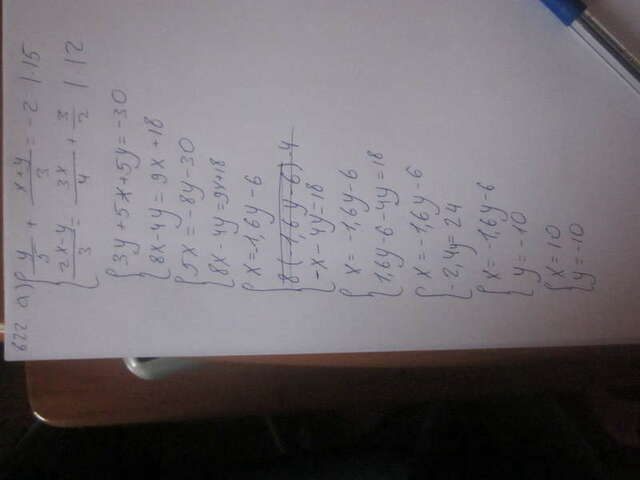 622 а) { y/5 + (x+y)/3 = -2 | ·15
{ (2x-y)/3 = 3x/4 + 3/2 | ·12
{ 3y+5x+5y=-30
{ 8x-4y=9x+18
{ 5x=-8y-30
{ 8x-4y=9x+18
{ x=-1,6y-6
8(-1,6y-6)-4
{ -x-4y=18
{ x=-1,6y-6
{ 1,6y-6-4y=18
{ x=-1,6y-6
{ -2,4y=24
{ x=-1,6y-6
{ y=-10
{ x=10
{ y=-10